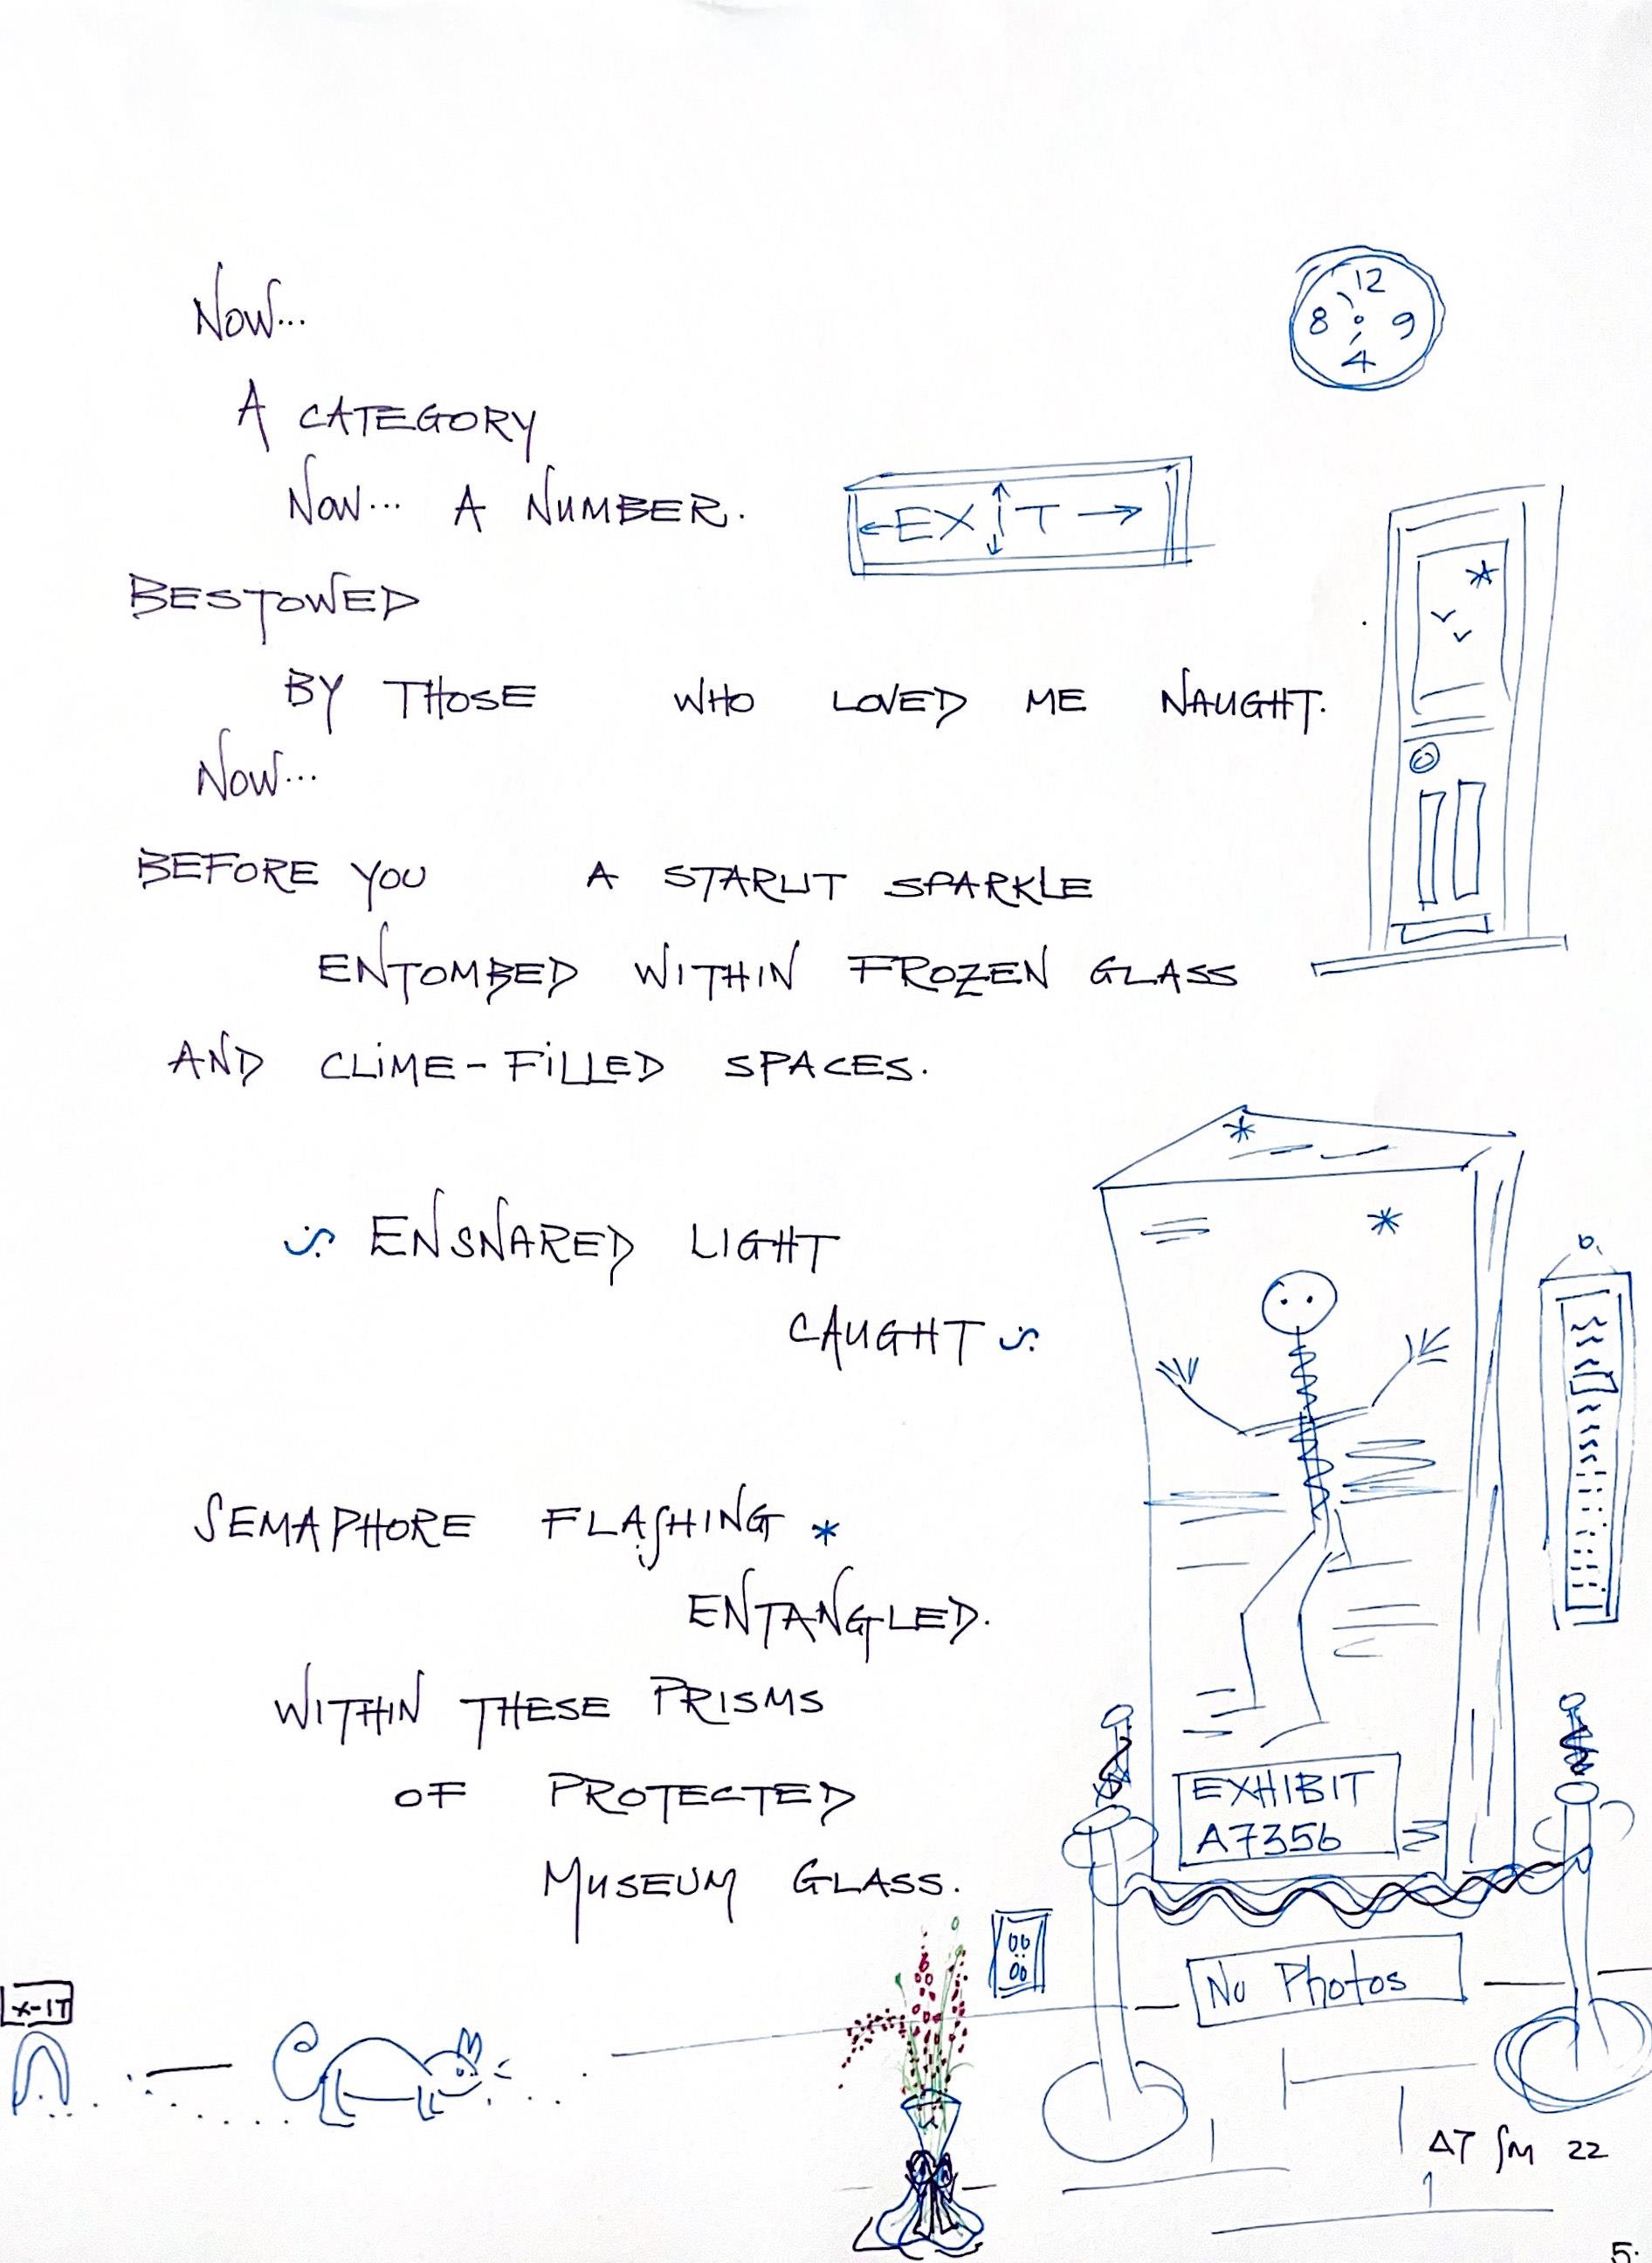 Now...
12
8 9
4
A CATEGORY
Now... A NUMBER.
←EXIT→
BESTOWED
BY THOSE WHO LOVED ME NAUGHT.
Now...
BEFORE YOU A STARLIT SPARKLE
ENTOMBED WITHIN FROZEN GLASS
AND CLIME-FILLED SPACES.
ENSNARED LIGHT
CAUGHT
SEMAPHORE FLASHING *
ENTANGLED.
WITHIN THESE PRISMS
OF PROTECTED
MUSEUM GLASS.
EXHIBIT
A7356
No Photos
X-IT
ΔT SM 22
5.